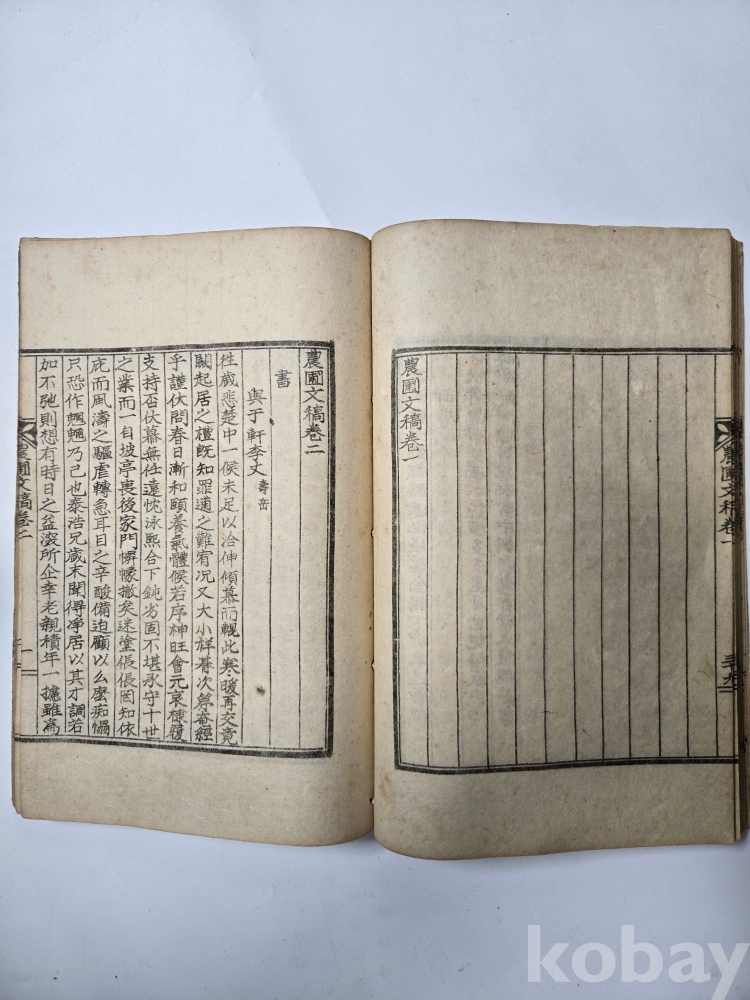 農圃文稿卷一
三十九
農圃文稿卷一
農圃文稿卷二
書
與于軒李丈 壽岳
徃歲悲楚中一候未足以洽伸傾慕而輥此寒暖再交竟
闕起居之禮旣知罪逋之難宥况又大小祥朞次第奄經
乎謹伏問春日漸和頤養氣體候若序神旺會元哀棣履
支持否伏慕無任遠忱泳熙合下鈍劣固不堪承守十世
之業而一自坡亭喪後家門懈懞撤矣迷塗倀倀罔知依
庇而風濤之驅虐轉急耳目之辛酸備迫顧以么麽痴愓
只恐作魍魎乃已也泰浩兄歲末聞得淨居以其才調若
加不弛則想有時日之益滾所企幸老親積年一攄雖爲
農圃文稿卷二
一
kobay